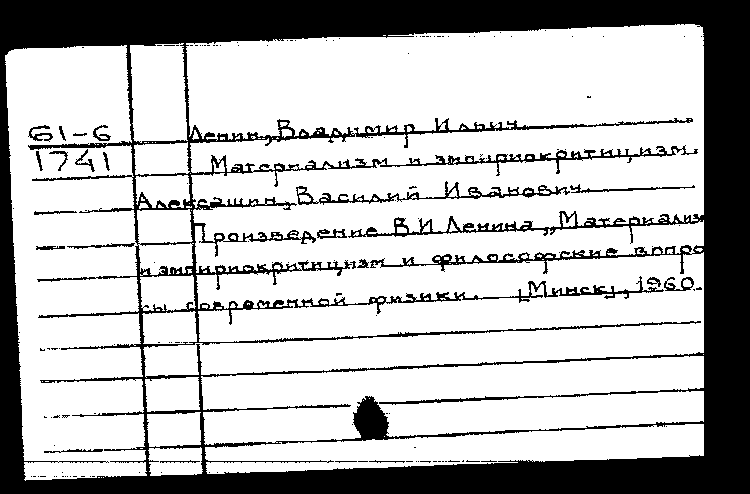 61-6
1741
Ленин, Владимир Ильич.
Материализм и эмпириокритицизм.
Алексашин, Василий Иванович.
Произведение В.И.Ленина „Материализм
и эмпириокритицизм и философские вопро
сы современной физики. [Минск], 1960.